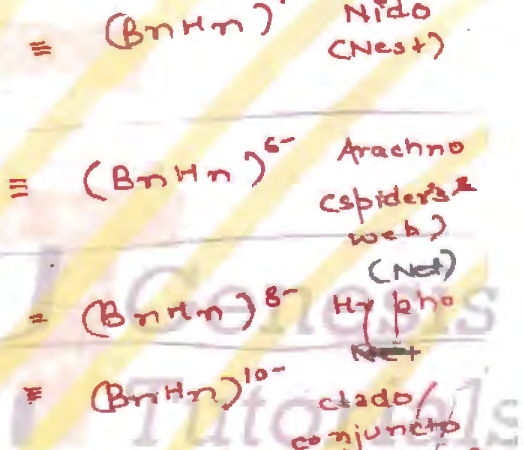 ≡ (BnHn) Nido
(Nest)
≡ (BnHn)⁶⁻ Arachno
(spider's
web)
(Net)
= (BnHn)⁸⁻ Hypho
≡ (BnHn)¹⁰⁻ clado/
conjuncto
Genesis
Tutorials